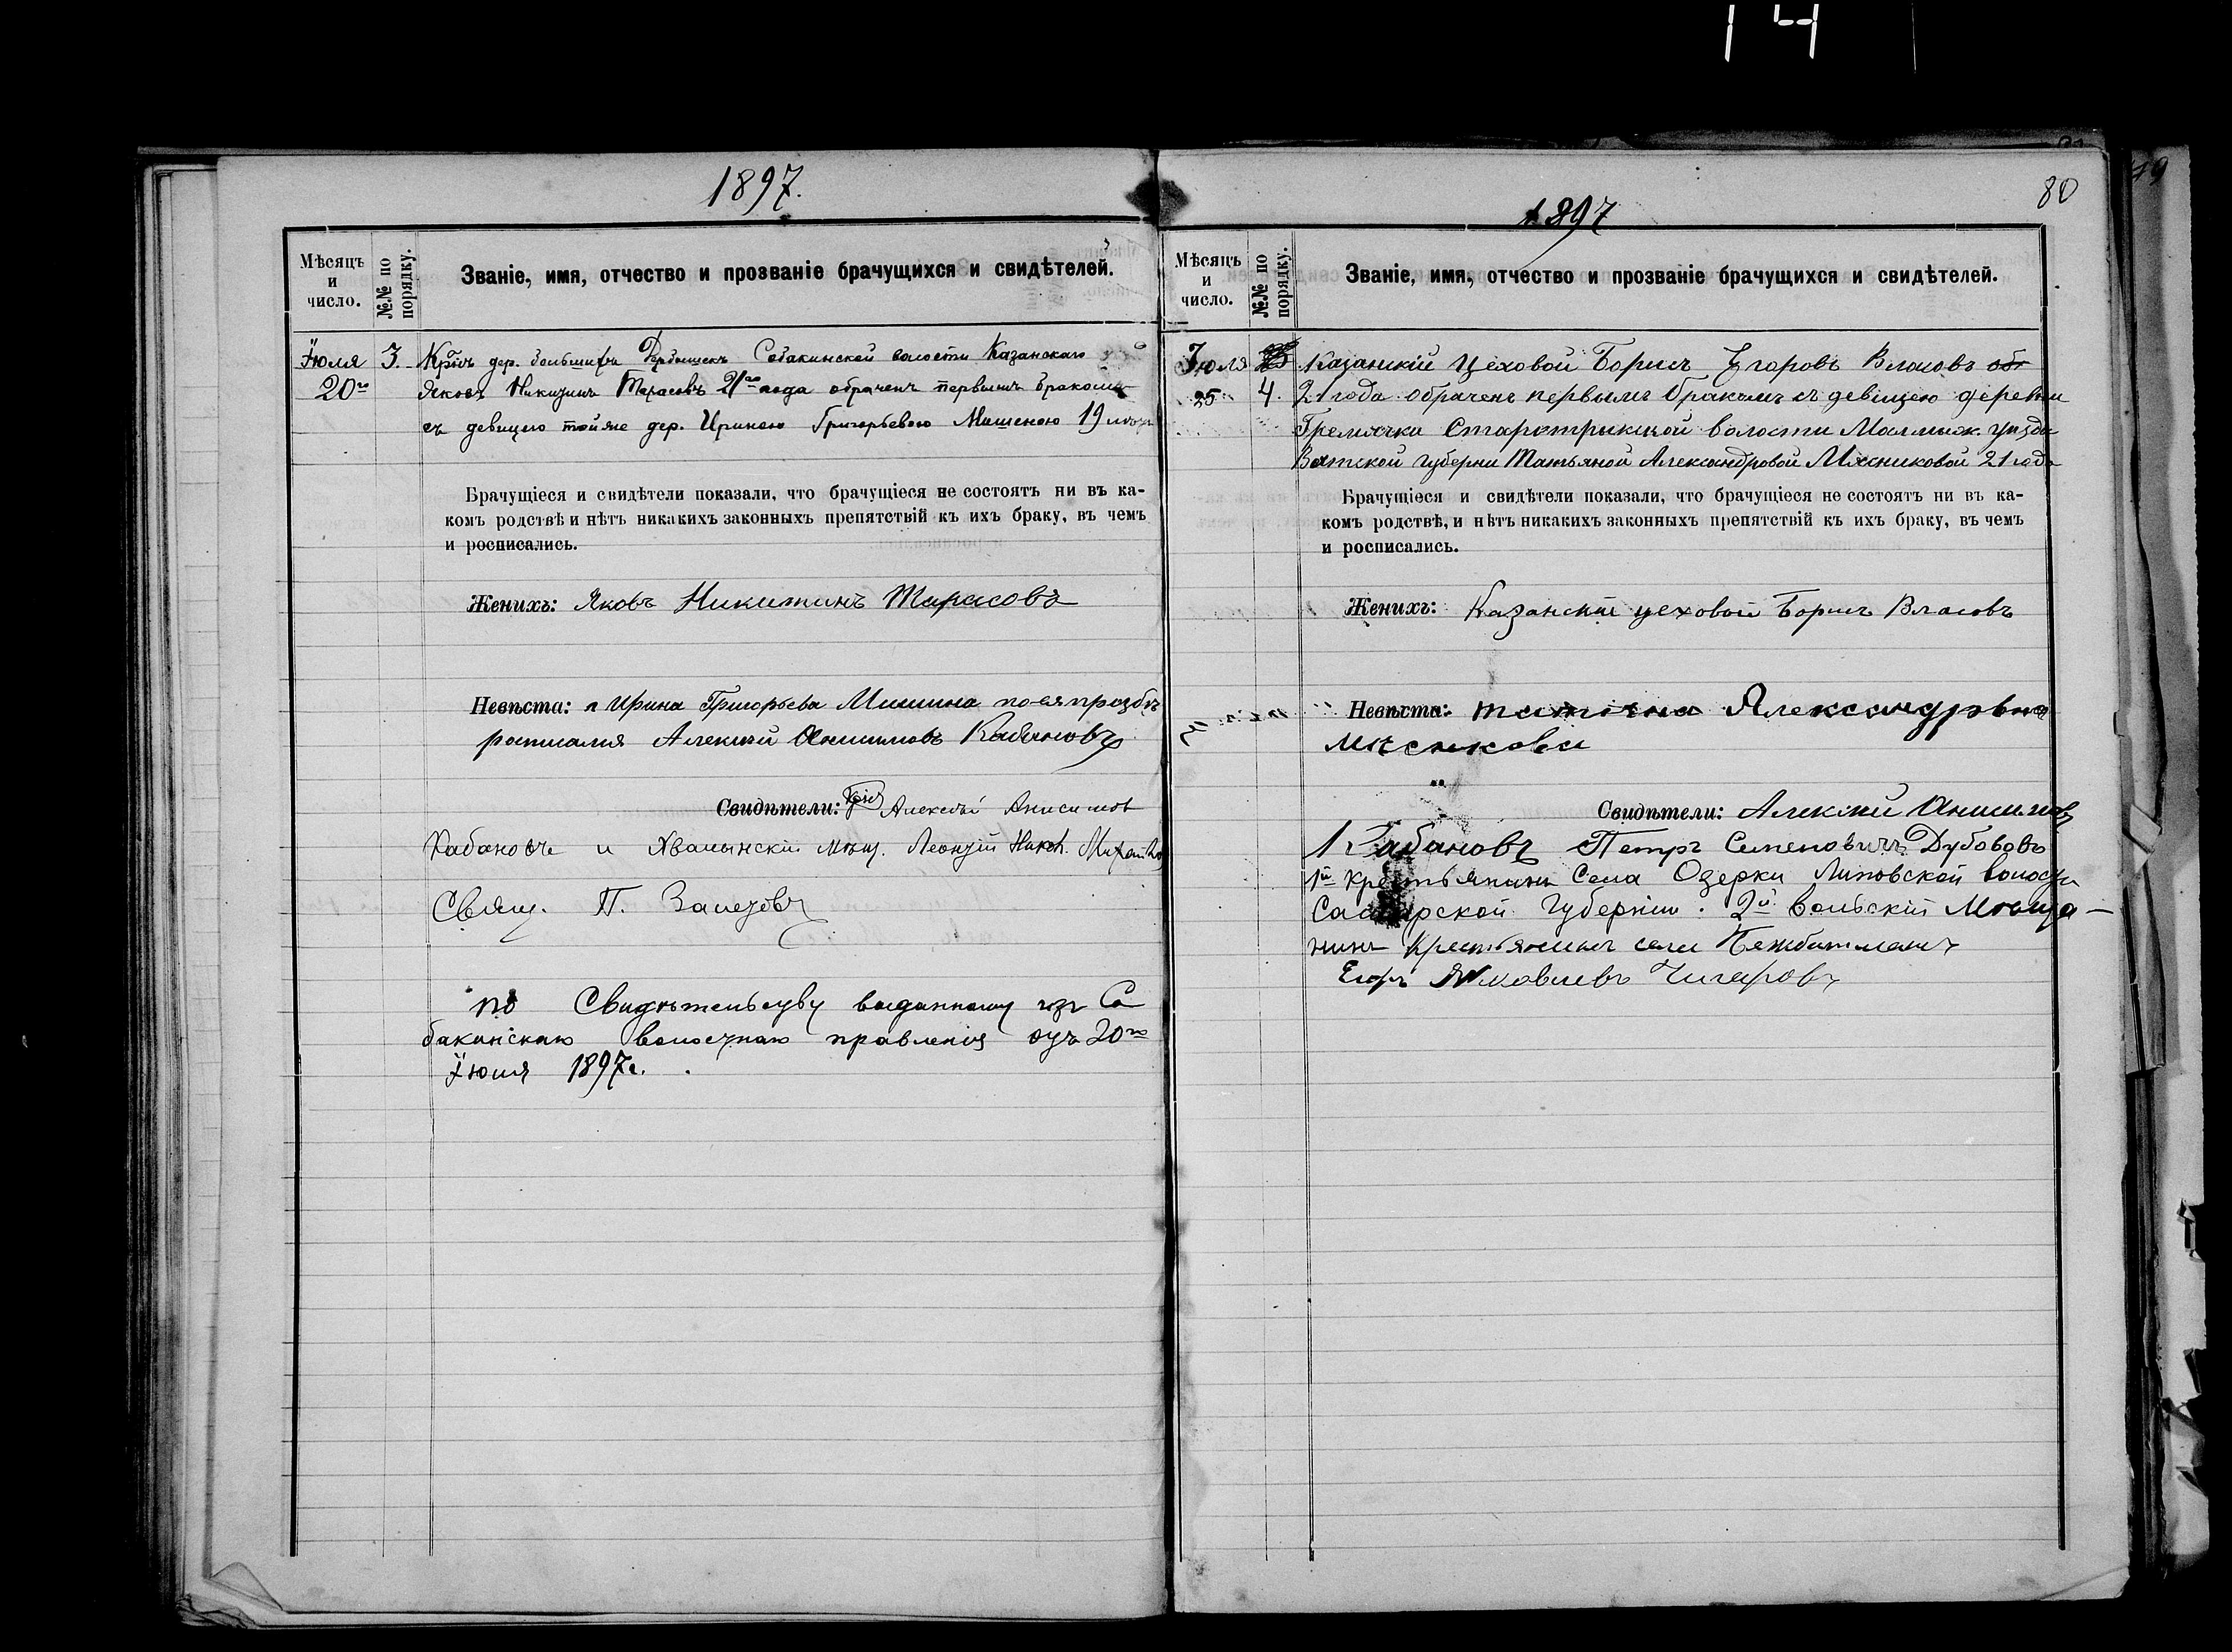 14
1897.
Мѣсяцъ и число.
№№ по порядку.
Званіе, имя, отчество и прозваніе брачущихся и свидѣтелей.
Іюля 3. Кр. дер. большихъ Дербышекъ Собакинской волости Казанскаго
20го Яковъ Никитинъ Тарасовъ 21го года обраченъ первымъ бракомъ
съ девицею той же дер. Ириною Григорьевою Мишеною 19
Брачущіеся и свидѣтели показали, что брачущіеся не состоятъ ни въ ка-
комъ родствѣ и нѣтъ никакихъ законныхъ препятствій къ ихъ браку, въ чемъ
и росписались.
Женихъ: Яковъ Никитинъ Тарасовъ
Невѣста: Ирина Григорьева Мишина по ея прозбѣ
Алексий Анисимовъ Кабановъ
Свидѣтели: Алексѣй Анисимов
Кабановъ и Хвалынскій мѣщ. Леонтій
Свящ. П. Залетовъ
по Свидѣтельству выданному изъ Со
бакинскаго волостнаго правленія отъ 20го
Іюля 1897г.
1897
80
Мѣсяцъ и число.
№№ по порядку.
Званіе, имя, отчество и прозваніе брачущихся и свидѣтелей.
Іюля Казанскій Цеховой Борисъ Егоровъ Власовъ об
25 4. 21 года обраченъ первымъ бракомъ съ девицею деревни
Гремячки Старотрыкской волости Малмыж. уѣзда
Вятской губерни Татьяной Александровой Мясниковой 21 года
Брачущіеся и свидѣтели показали, что брачущіеся не состоятъ ни въ ка-
комъ родствѣ, и нѣтъ никакихъ законныхъ препятствій къ ихъ браку, въ чемъ
и росписались.
Женихъ: Казанскій цеховой Борисъ Власовъ
Невѣста: Александрвна
Свидѣтели: Алексий Анисимов
Кабановъ Петръ Семеновичъ Дубововъ
1й крестьянинъ Села Озерки Липовской волости
губерніи. 2й вольскій Мѣща-
нинъ Крестьянинъ села
Егоръ Яковлевъ Чигаровъ